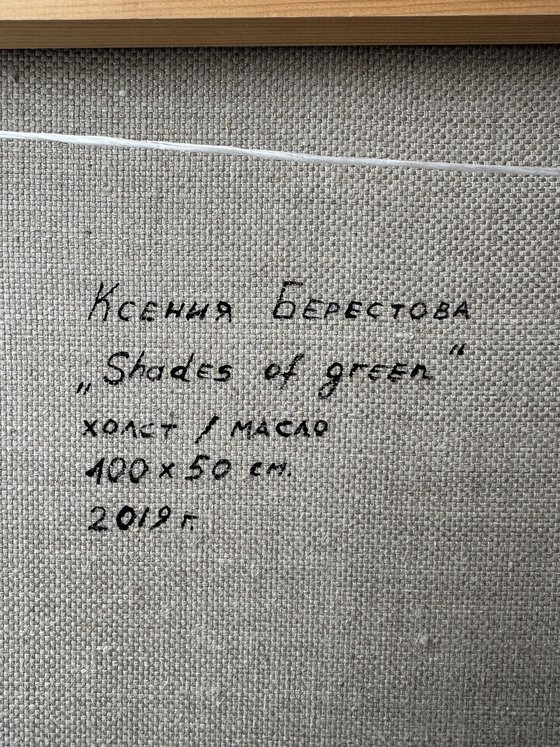 Ксения Берестова
„Shades of green“
холст / масло
100 x 50 см.
2019 г.